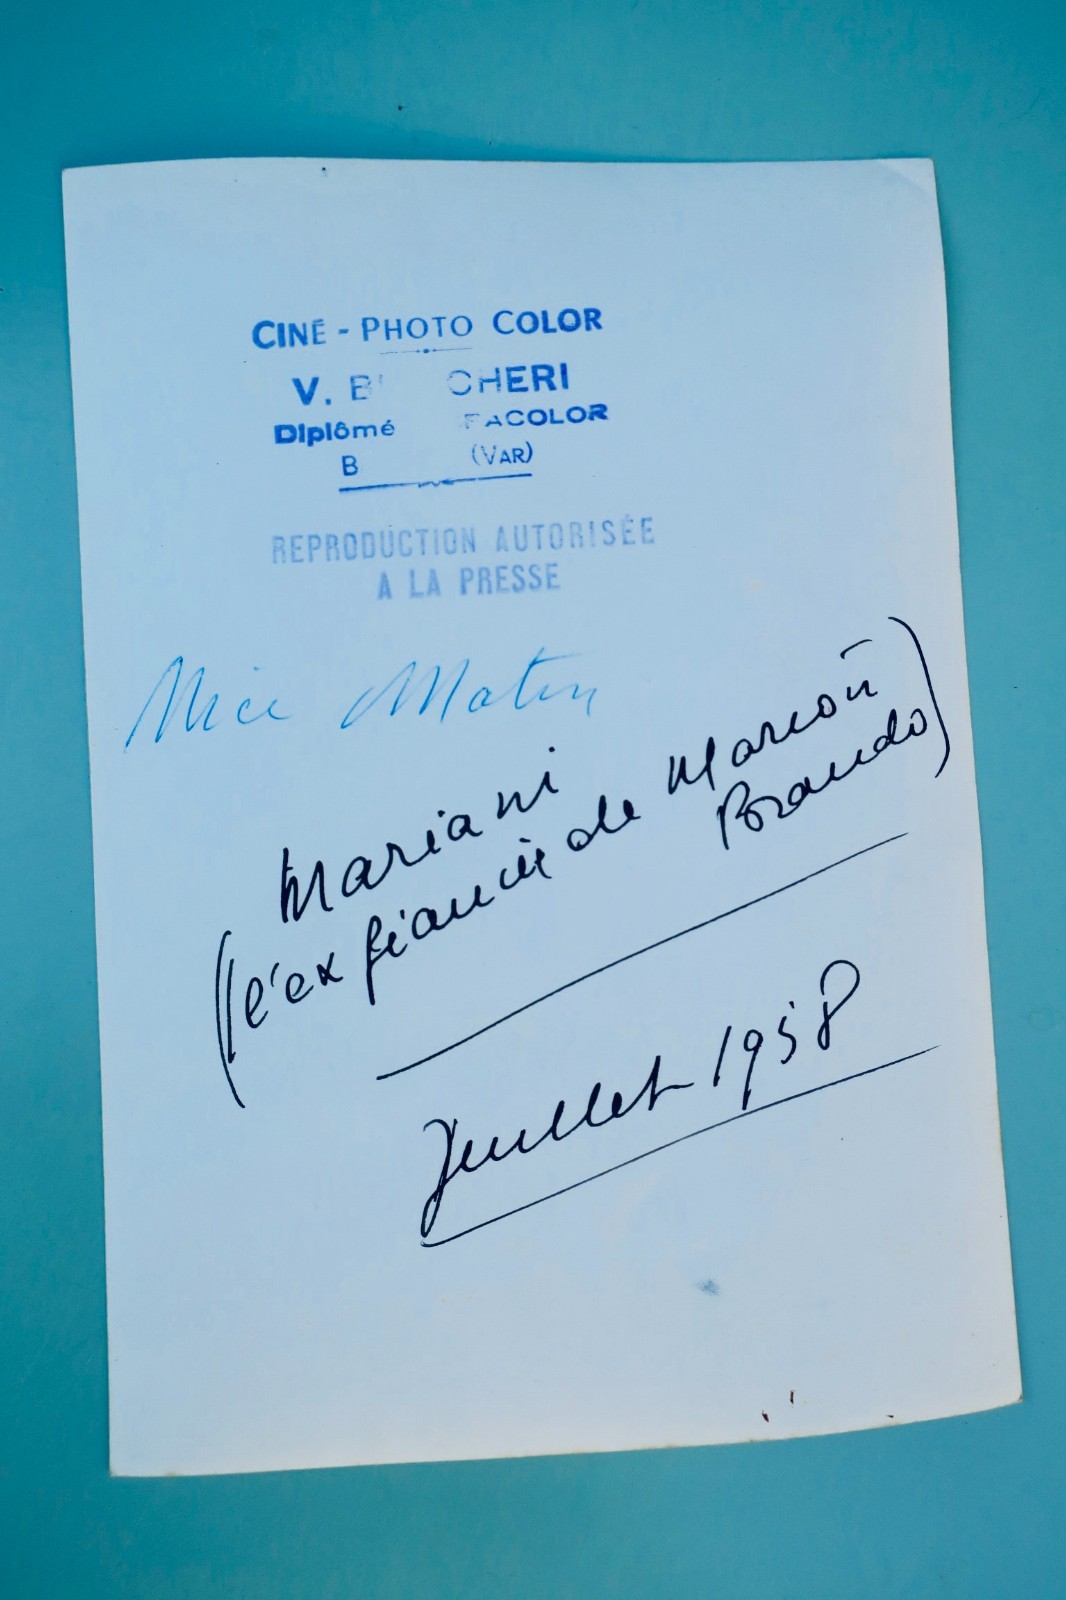 CINÉ - PHOTO COLOR
V. B CHERI
Diplômé FACOLOR
B (VAR)
REPRODUCTION AUTORISÉE
A LA PRESSE
Nice Matin
Mariani
(l'ex fiancée de Marlon
Brando)
Juillet 1958